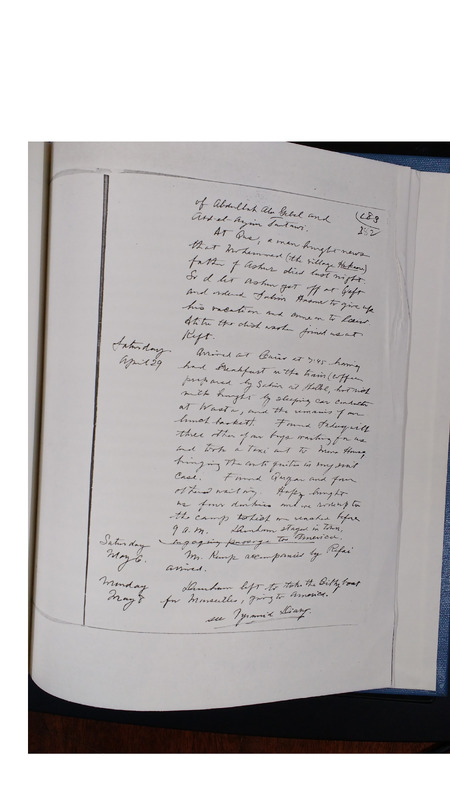 of Abdullah Abu Gebel and
Abd-el-Azim Tantawi.
At Qus, a man brought news
that Mohammed (the village
father of Ashur died last night.
So I let Ashur get off at Qeft
and ordered Salim to give up
his vacation and come on to
joined us at
Keft.
Saturday
April 29
Arrived at Cairo at 7:45 having
had breakfast in the train (coffee
prepared by Sabir, hot
milk brought by sleeping car conductor
at Wasta, and the remains of our
lunch basket). Found
three other of our boys waiting for us
and took a taxi out to Mena House
bringing the in my suit
case. Found and four
others waiting. brought
us four donkeys and we
the camp which we reached before
9 A.M. Dunham stayed in town,
engaging passage to America.
Saturday
May 6.
Mr. Kemp accompanied by Rifai
arrived.
Monday
May 8
Dunham left to take the boat
for Marseilles, going to America.
see Pyramid Diary.